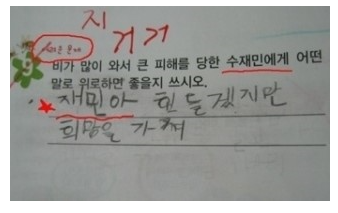 지
거 거
비가 많이 와서 큰 피해를 당한 수재민에게 어떤
말로 위로하면 좋을지 쓰시오.
재민아 힘들겠지만
희망을 가져